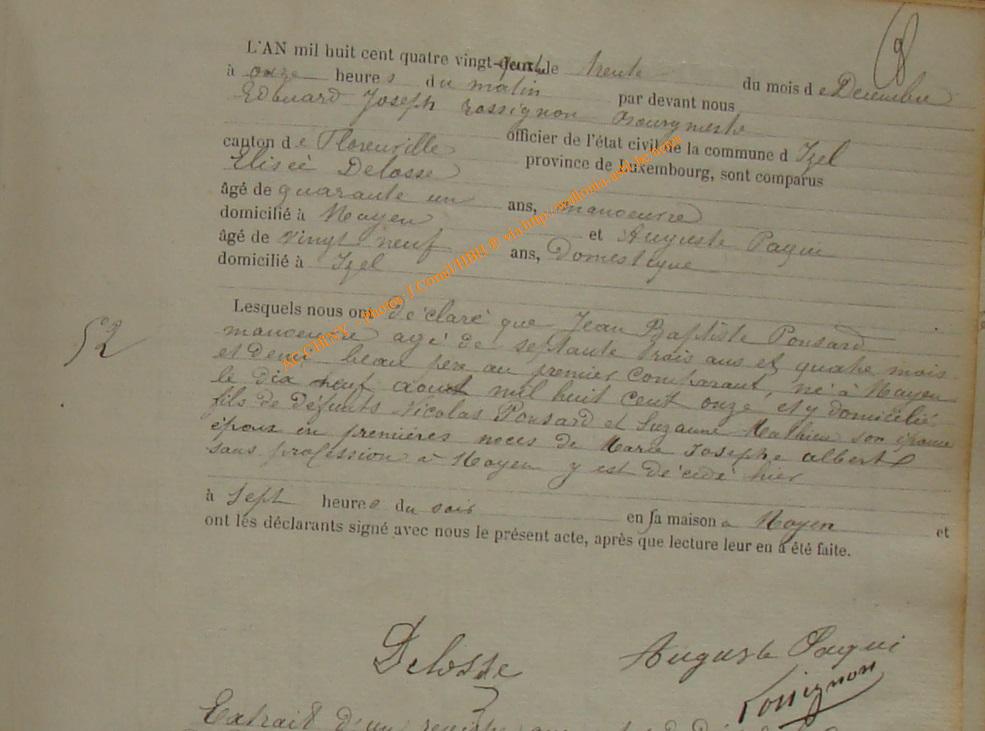 8
L'AN mil huit cent quatre vingt-quatre le trente du mois de Decembre
à onze heures du matin par devant nous
Edouard Joseph Rossignon Bourgmestre
officier de l'état civil de la commune d Izel
canton de Florenville province de Luxembourg, sont comparus
Elisée Delosse
âgé de quarante un ans, manoeuvre
domicilié à Moyen et Auguste Paqui
âgé de vingt neuf ans, Domestique
domicilié à Izel
52
Lesquels nous ont déclaré que Jean Baptiste Ponsard
manoeuvre agé de septante trois ans et quatre mois
et demi beau père au premier comparant, né à Moyen
le dix neuf aout mil huit cent onze et y domicilié
fils de défunts Nicolas Ponsard et Suzanne Mathieu son épouse
époux en premières noces de Marie Josephe Albert
sans profession à Moyen y est décédé hier
à sept heures du soir en sa maison à Moyen et
ont les déclarants signé avec nous le présent acte, après que lecture leur en a été faite.
Delosse
Auguste Paqui
Rossignon
Extrait d'un